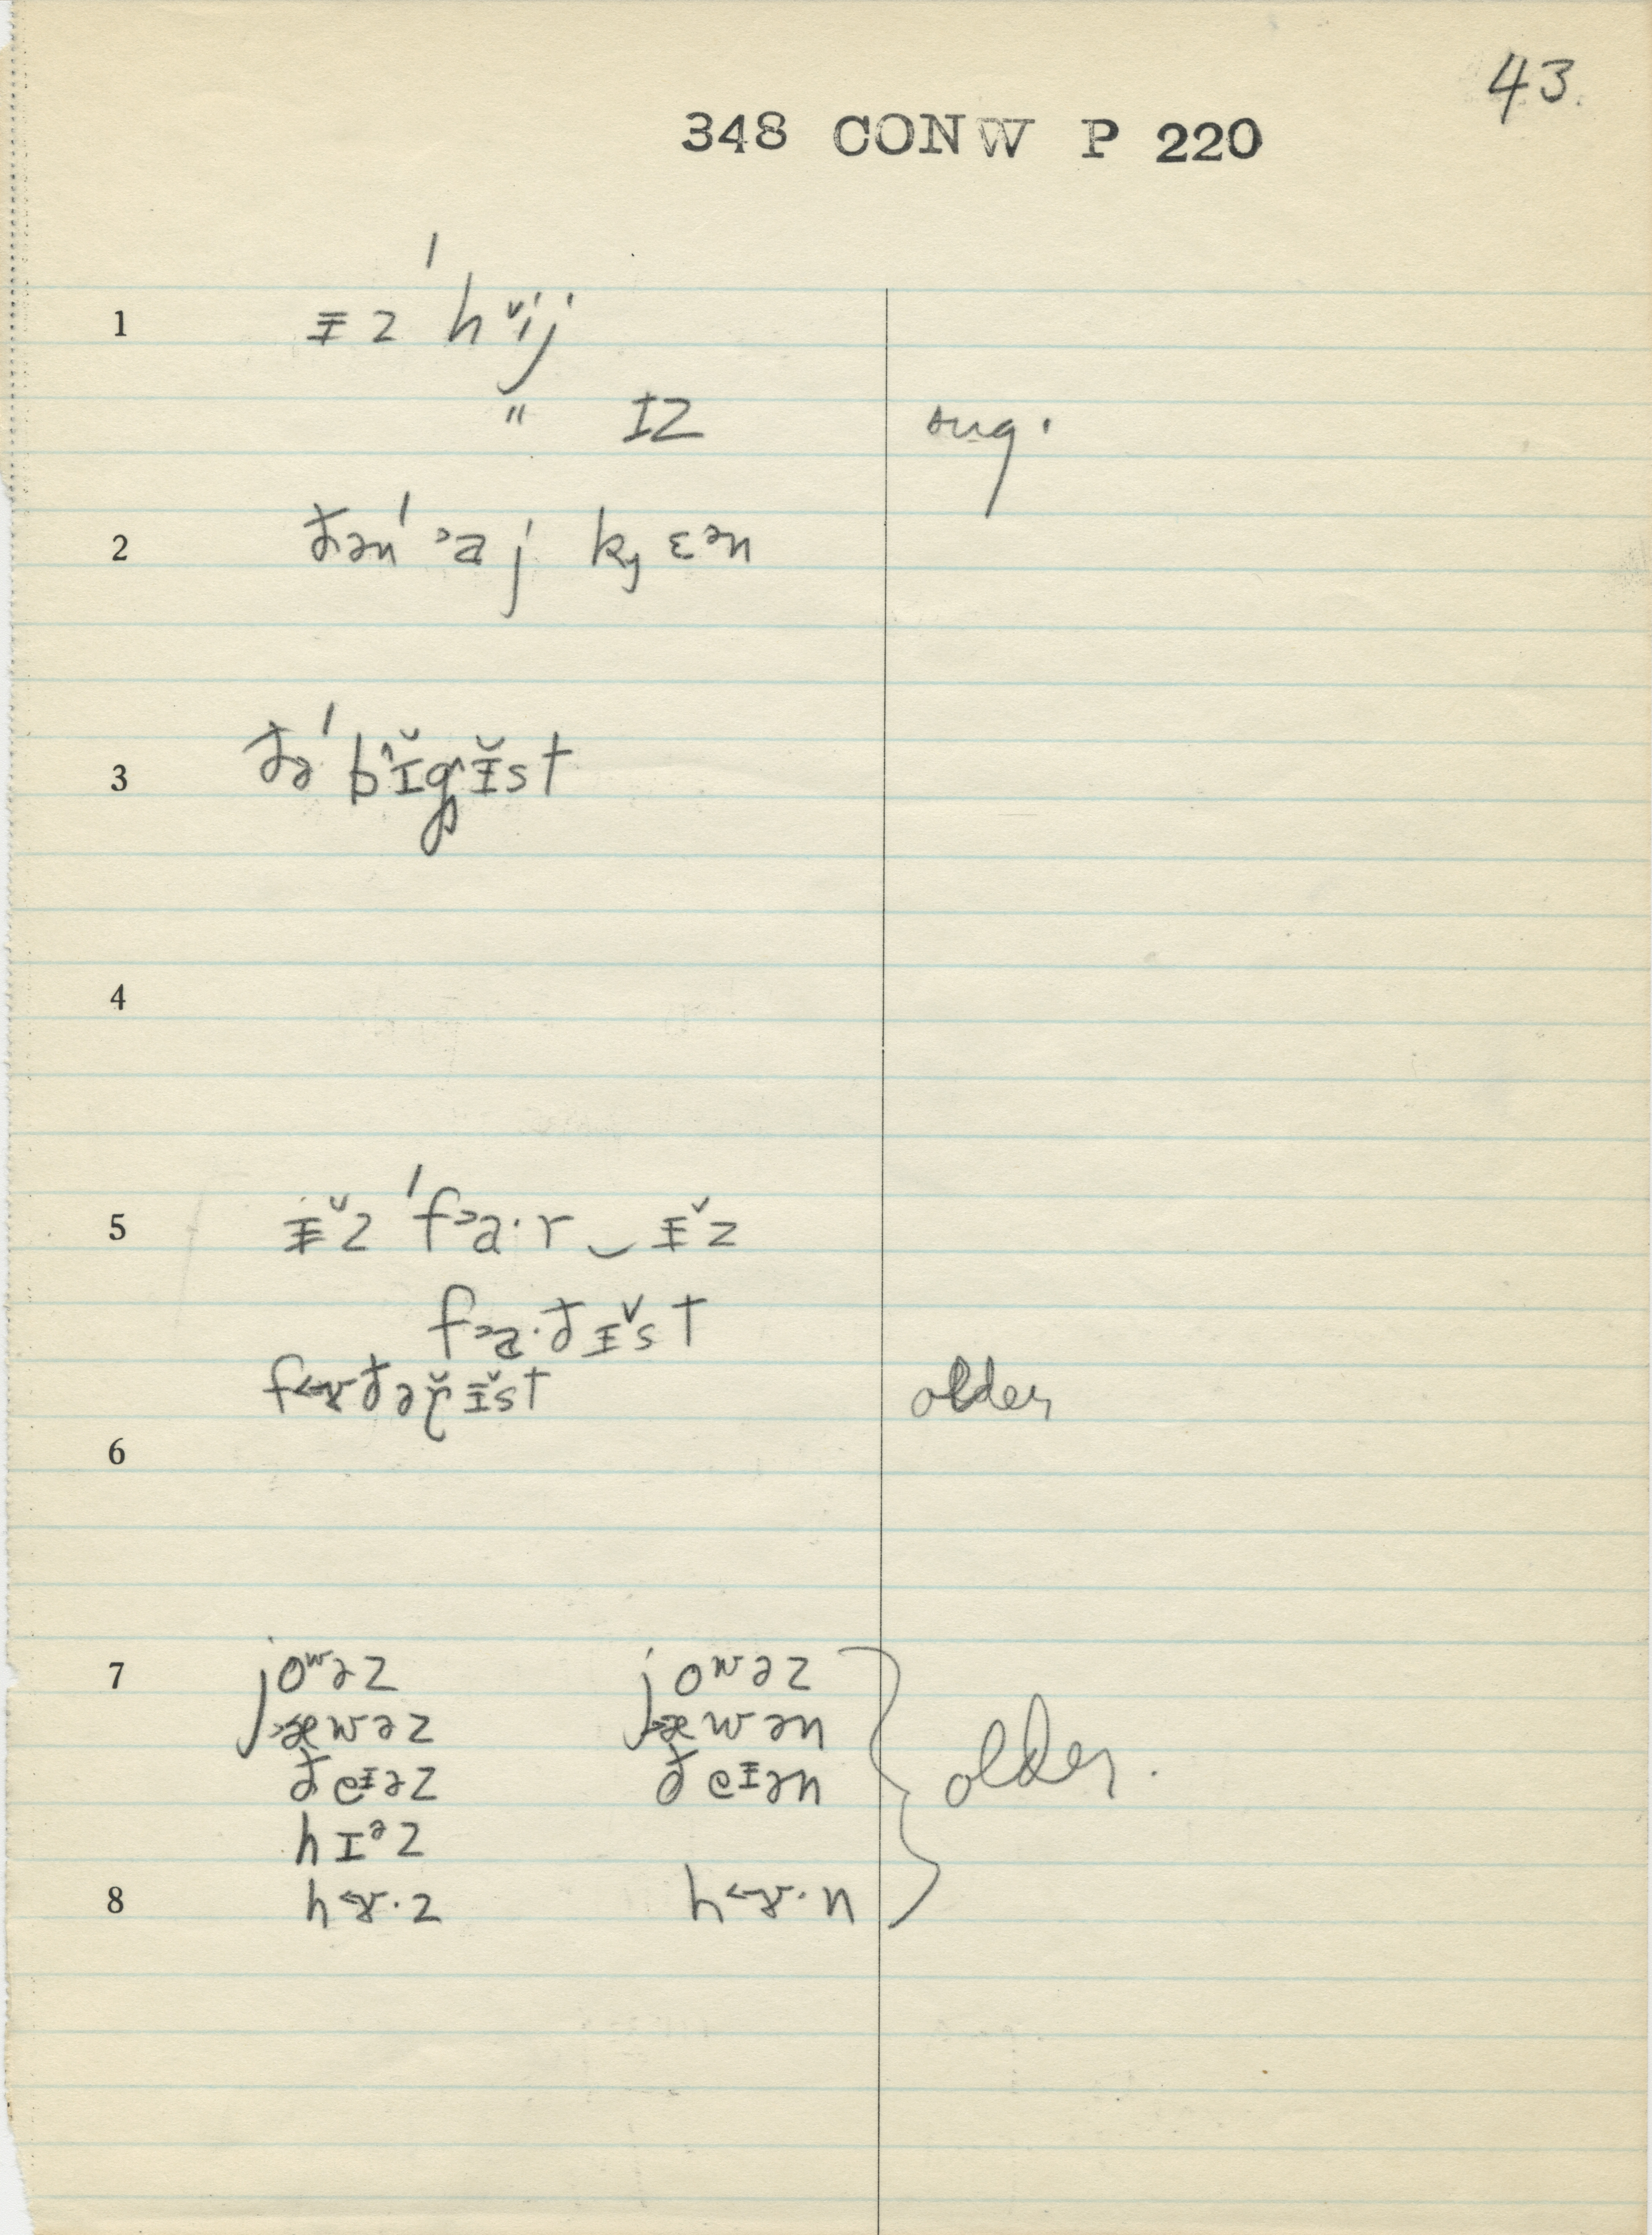 43.
348 CONW P 220
1 ᵻz ˈhɪ̆ij
" ɪz sug.
2 ðənˈ ˃aj kᶨɛᵊn
3 ðəˈbɪ̆gᵻ̆st
4
5 ᵻ̆z ˈf˃a·r‿ᵻ̆z
f˃a·ðᵻ̆st
f˂ɤðəɚ̆ᵻ̆st older
6
7 joʷəz joʷəz
˃æwəz ˃æwən
ðeᵻəz ðeᵻən older.
hɪᵊz
8 h˂ɤ·z h˂ɤ·n